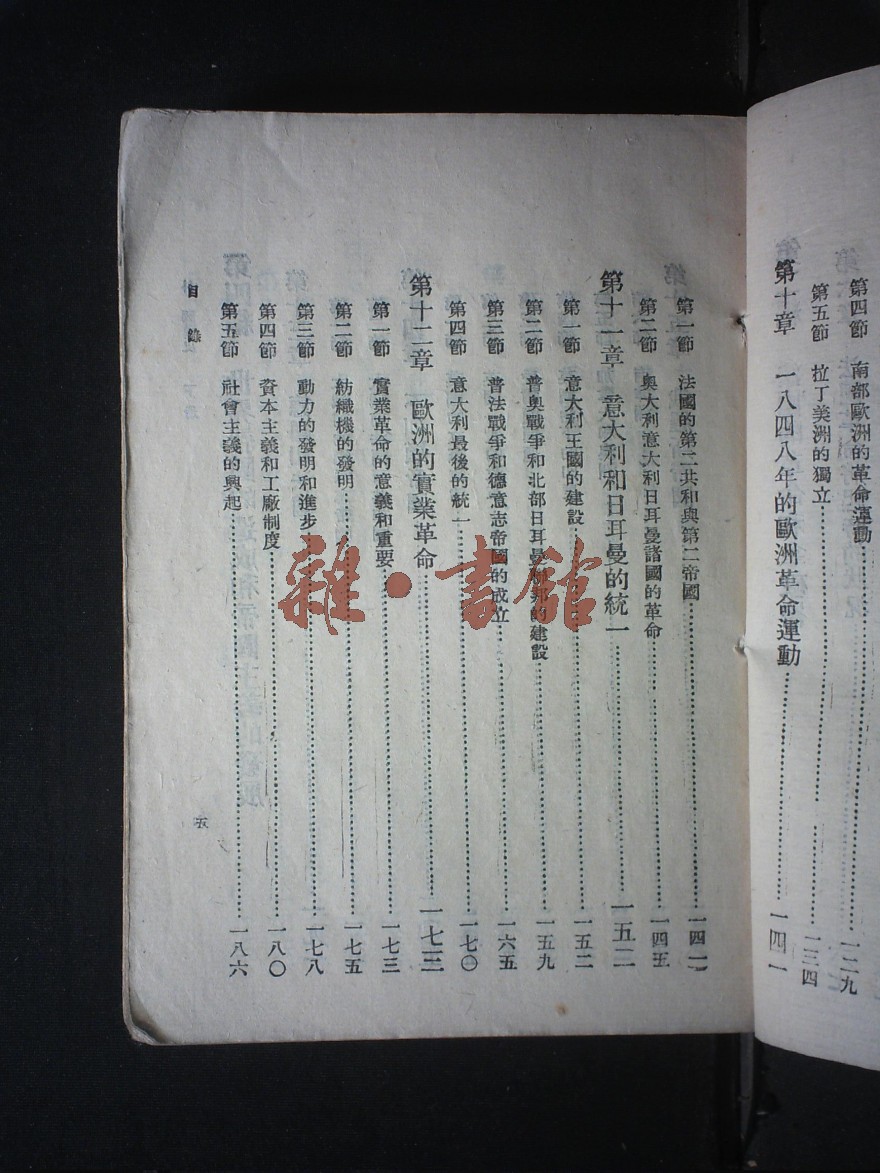 第四節　南部歐洲的革命運動……一二九
第五節　拉丁美洲的獨立……一三四
第十章　一八四八年的歐洲革命運動……一四一
第一節　法國的第二共和與第二帝國……一四一
第二節　奧大利意大利日耳曼諸國的革命……一四五
第十一章　意大利和日耳曼的統一……一五二
第一節　意大利王國的建設……一五二
第二節　普奧戰爭和北部日耳曼聯邦的建設……一五九
第三節　普法戰爭和德意志帝國的成立……一六五
第四節　意大利最後的統一……一七〇
第十二章　歐洲的實業革命……一七三
第一節　實業革命的意義和重要……一七三
第二節　紡織機的發明……一七五
第三節　動力的發明和進步……一七八
第四節　資本主義和工廠制度……一八〇
第五節　社會主義的興起……一八六
目錄
五
雜·書館